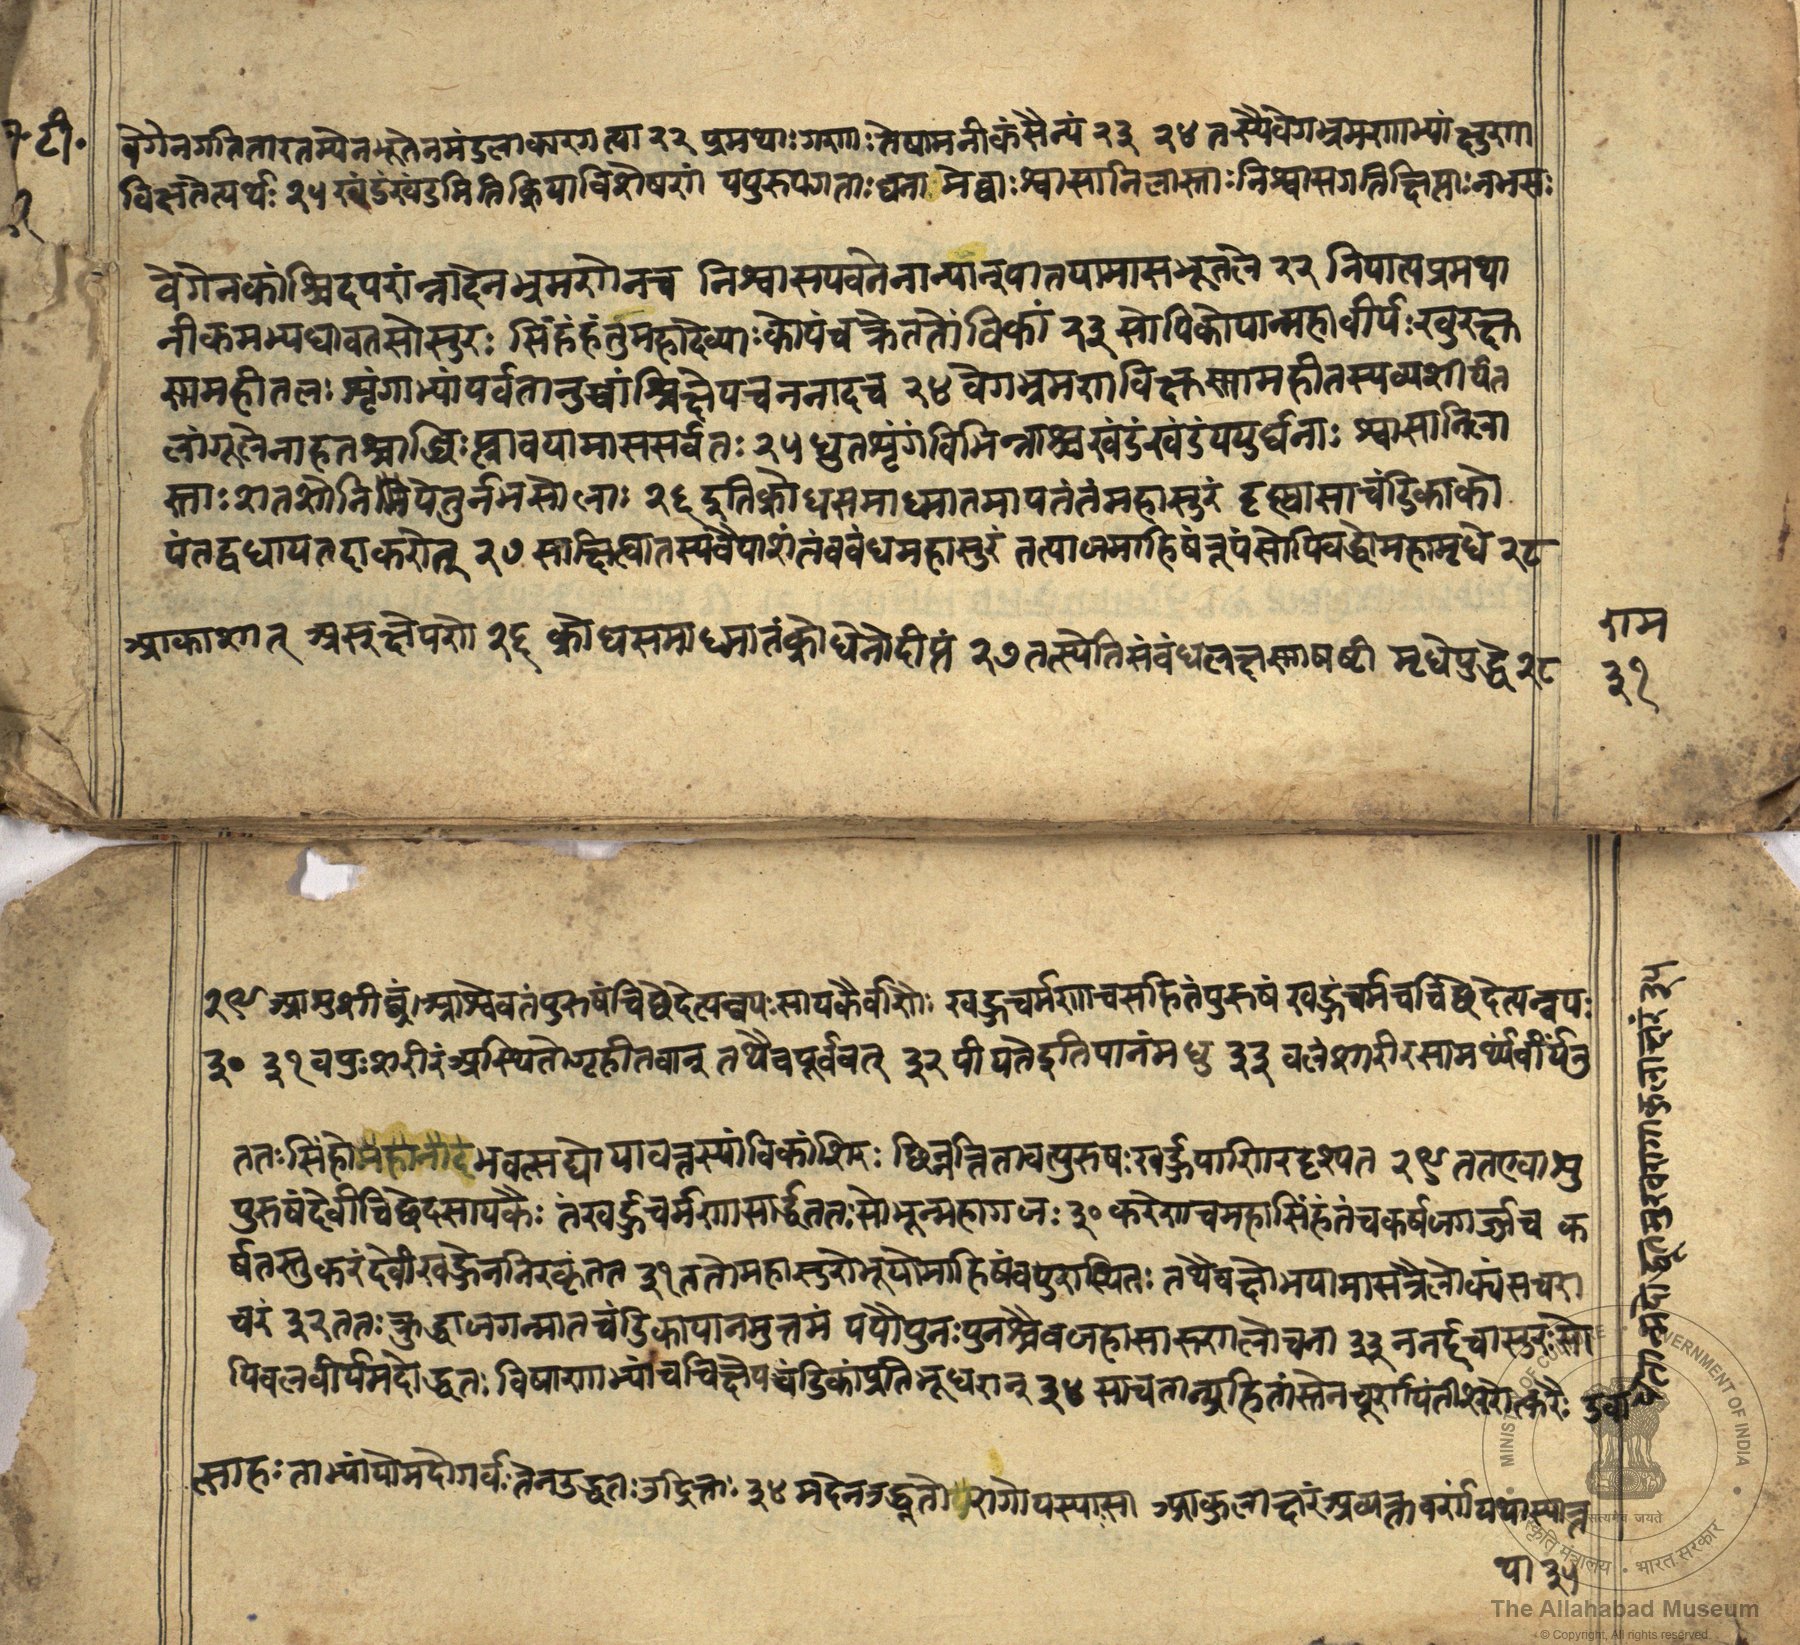 स॰ टी॰
३१
वेगेनगतितारतम्येनभूतेनमंडलाकारगत्या २२ प्रमथाःगणाःतेषामनीकंसैन्यं २३ २४ तस्यैवेगभ्रमणाभ्यांक्षुण्णा
विक्षतेत्यर्थः २५ खंडंखंडमितिक्रियाविशेषणं ययुरुपगताःघनामेघाःश्वासानिलास्ताःनिश्वासगतिक्षिप्ताःनभसः
वेगेनकांश्चिदपरांन्नादेनभ्रमणेनच निश्वासपवनेनान्यान्पातयामासभूतले २२ निपात्यप्रमथा
नीकमभ्यधावतसोसुरः सिंहंहंतुंमहादेव्याःकोपंचक्रेततोंविकां २३ सोपिकोपान्महावीर्यःखुरक्षु
स्ममहीतलः शृंगाभ्यांपर्वतानुच्चांश्चिक्षेपचननादच २४ वेगभ्रमणविक्षुस्मामहीतस्यव्यशीर्यत
लांगूलेनाहतश्चाब्धिःप्लावयामाससर्वतः २५ धुतशृंगविभिन्नाश्चखंडंखंडंययुर्घनाः श्वासानिला
स्ताःशतशोनिपेतुर्नभसोचलाः २६ इतिक्रोधसमाध्मातमापतंतंमहासुरं दृष्ट्वासाचंडिकाको
पंतद्वधायतदाकरोत् २७ साक्षिप्त्वातस्यवैपाशंतंबबंधमहासुरं तत्याजमाहिषंरूपंसोपिबद्धोमहामृधे २८
आकाशात् असुरक्षेपणे २६ क्रोधसमाध्मातंक्रोधेनोदीप्तं २७ तस्येतिसंबंधलक्षणाषष्टी मृधेयुद्धे २८
राम
३१
२९ आशुशीघ्रं।आश्वेवतंपुरुषंचिच्छेदेत्यन्वयःसायकैर्वाणैः खड्गचर्मणाचसहितंपुरुषं खड्गंचर्मचचिच्छेदेत्यन्वयः
३० ३१ वपुःशरीरंआस्थितोगृहीतवान् तथैवपूर्ववत् ३२ पीयतेइतिपानंमधु ३३ बलंशरीरसामर्थ्यंवीर्यमु
ततःसिंहोमहानादभवत्सद्योयावत्तस्यांविकांशिरः छिनत्तितावत्पुरुषःखड्गपाणिरदृश्यत २९ ततएवाशु
पुरुषंदेवीचिच्छेदसायकैः तंखड्गचर्मणासार्द्धंततःसोभून्महागजः ३० करेणचमहासिंहंतंचकर्षजगर्ज्जच क
र्षतस्तुकरंदेवीखड्गेननिरकृंतत ३१ ततोमहासुरोभूयोमाहिषंवपुरास्थितः तथैवक्षोभयामासत्रैलोक्यंसचरा
चरं ३२ ततःक्रुद्धाजगन्माताचंडिकापानमुत्तमं पपौपुनःपुनश्चैवजहासारुणलोचना ३३ ननर्द्दचासुरःसो
पिबलवीर्यमदोद्धतः विषाणाभ्यांचचिक्षेपचंडिकांप्रतिभूधरान् ३४ साचतान्प्रहितांस्तेनचूर्णयंतीशरोत्करैः उवा
चतंमदोद्धूतमुखरागाकुलाक्षरं ३५
त्साहःताभ्यांयोमदोगर्वःतेनउद्धतःउद्रिक्तः ३४ मदेनउद्धूतोरागोयस्यासा आकुलाक्षरंअव्यक्तवर्णंयथास्यात्त
था ३५
MINISTRY OF CULTURE • GOVERNMENT OF INDIA
सत्यमेव जयते
संस्कृति मंत्रालय • भारत सरकार
The Allahabad Museum
© Copyright, All rights reserved